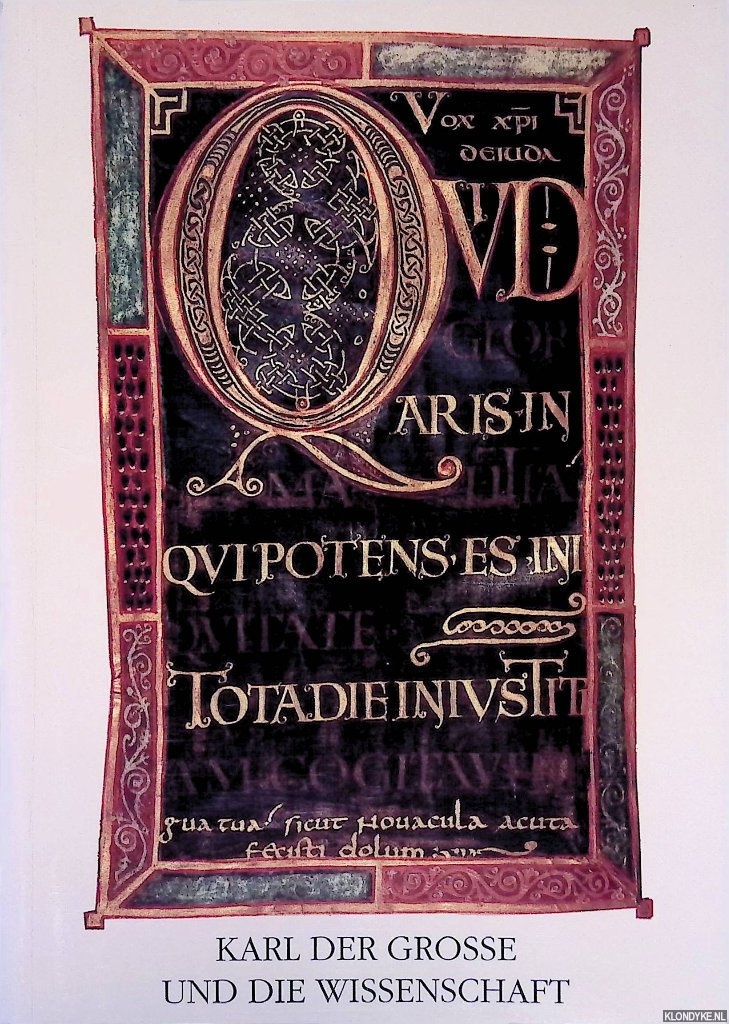 Vox xp̄i
deiuda
QVID
GLOR
ARIS·IN
MALITIA
QVI POTENS·ES·INI
QVITATE
TOTA DIE INIVSTIT
AM·COGITAVIT
gua tua sicut novacula acuta
fecisti dolum
KARL DER GROSSE
UND DIE WISSENSCHAFT
KLONDYKE.NL